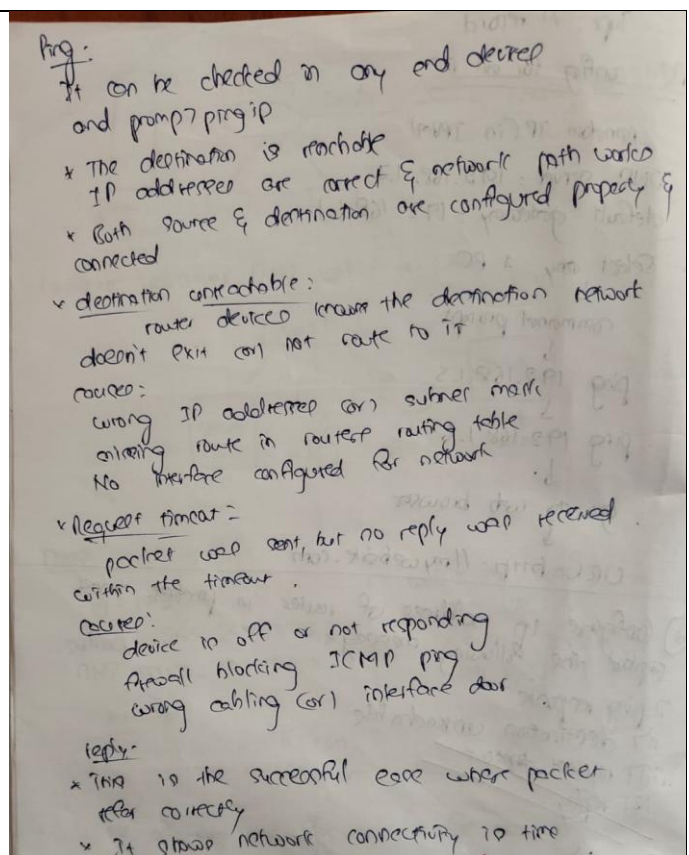 Ping:
It can be checked in any end devices
and promp> ping ip
* The destination is reachable
IP addresses are correct & network path works
* Both source & destination are configured properly &
connected
* destination unreachable:
router devices knows the destination network
doesn't exit (or) not route to it
causes:
wrong IP addresses (or) subnet mask
missing route in routers routing table
No interface configured for network
* Request timeout =
packet was sent, but no reply was received
within the timeout.
causes:
device is off or not responding
firewall blocking ICMP ping
wrong cabling (or) interface door
reply-
* This is the successful case where packet
correctly
* It shows network connectivity is time